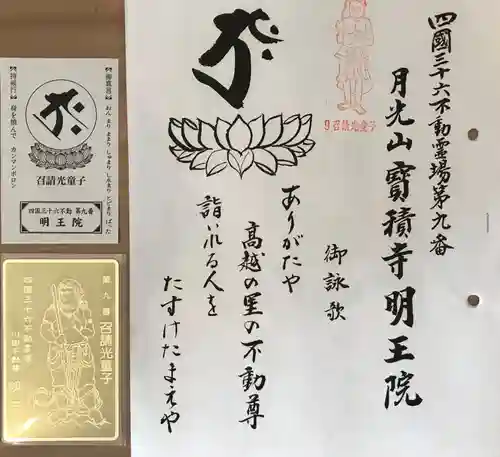 四國三十六不動霊場第九番
月光山寶積寺明王院
御詠歌
ありがたや
高越の里の不動尊
詣いれる人を
たすけたまえや
9召請光童子
御真言
持戒行
身を慎んで カンマンボロン
召請光童子
四国三十六不動 第九番
明王院
第九番
召請光童子
四国三十六不動霊場